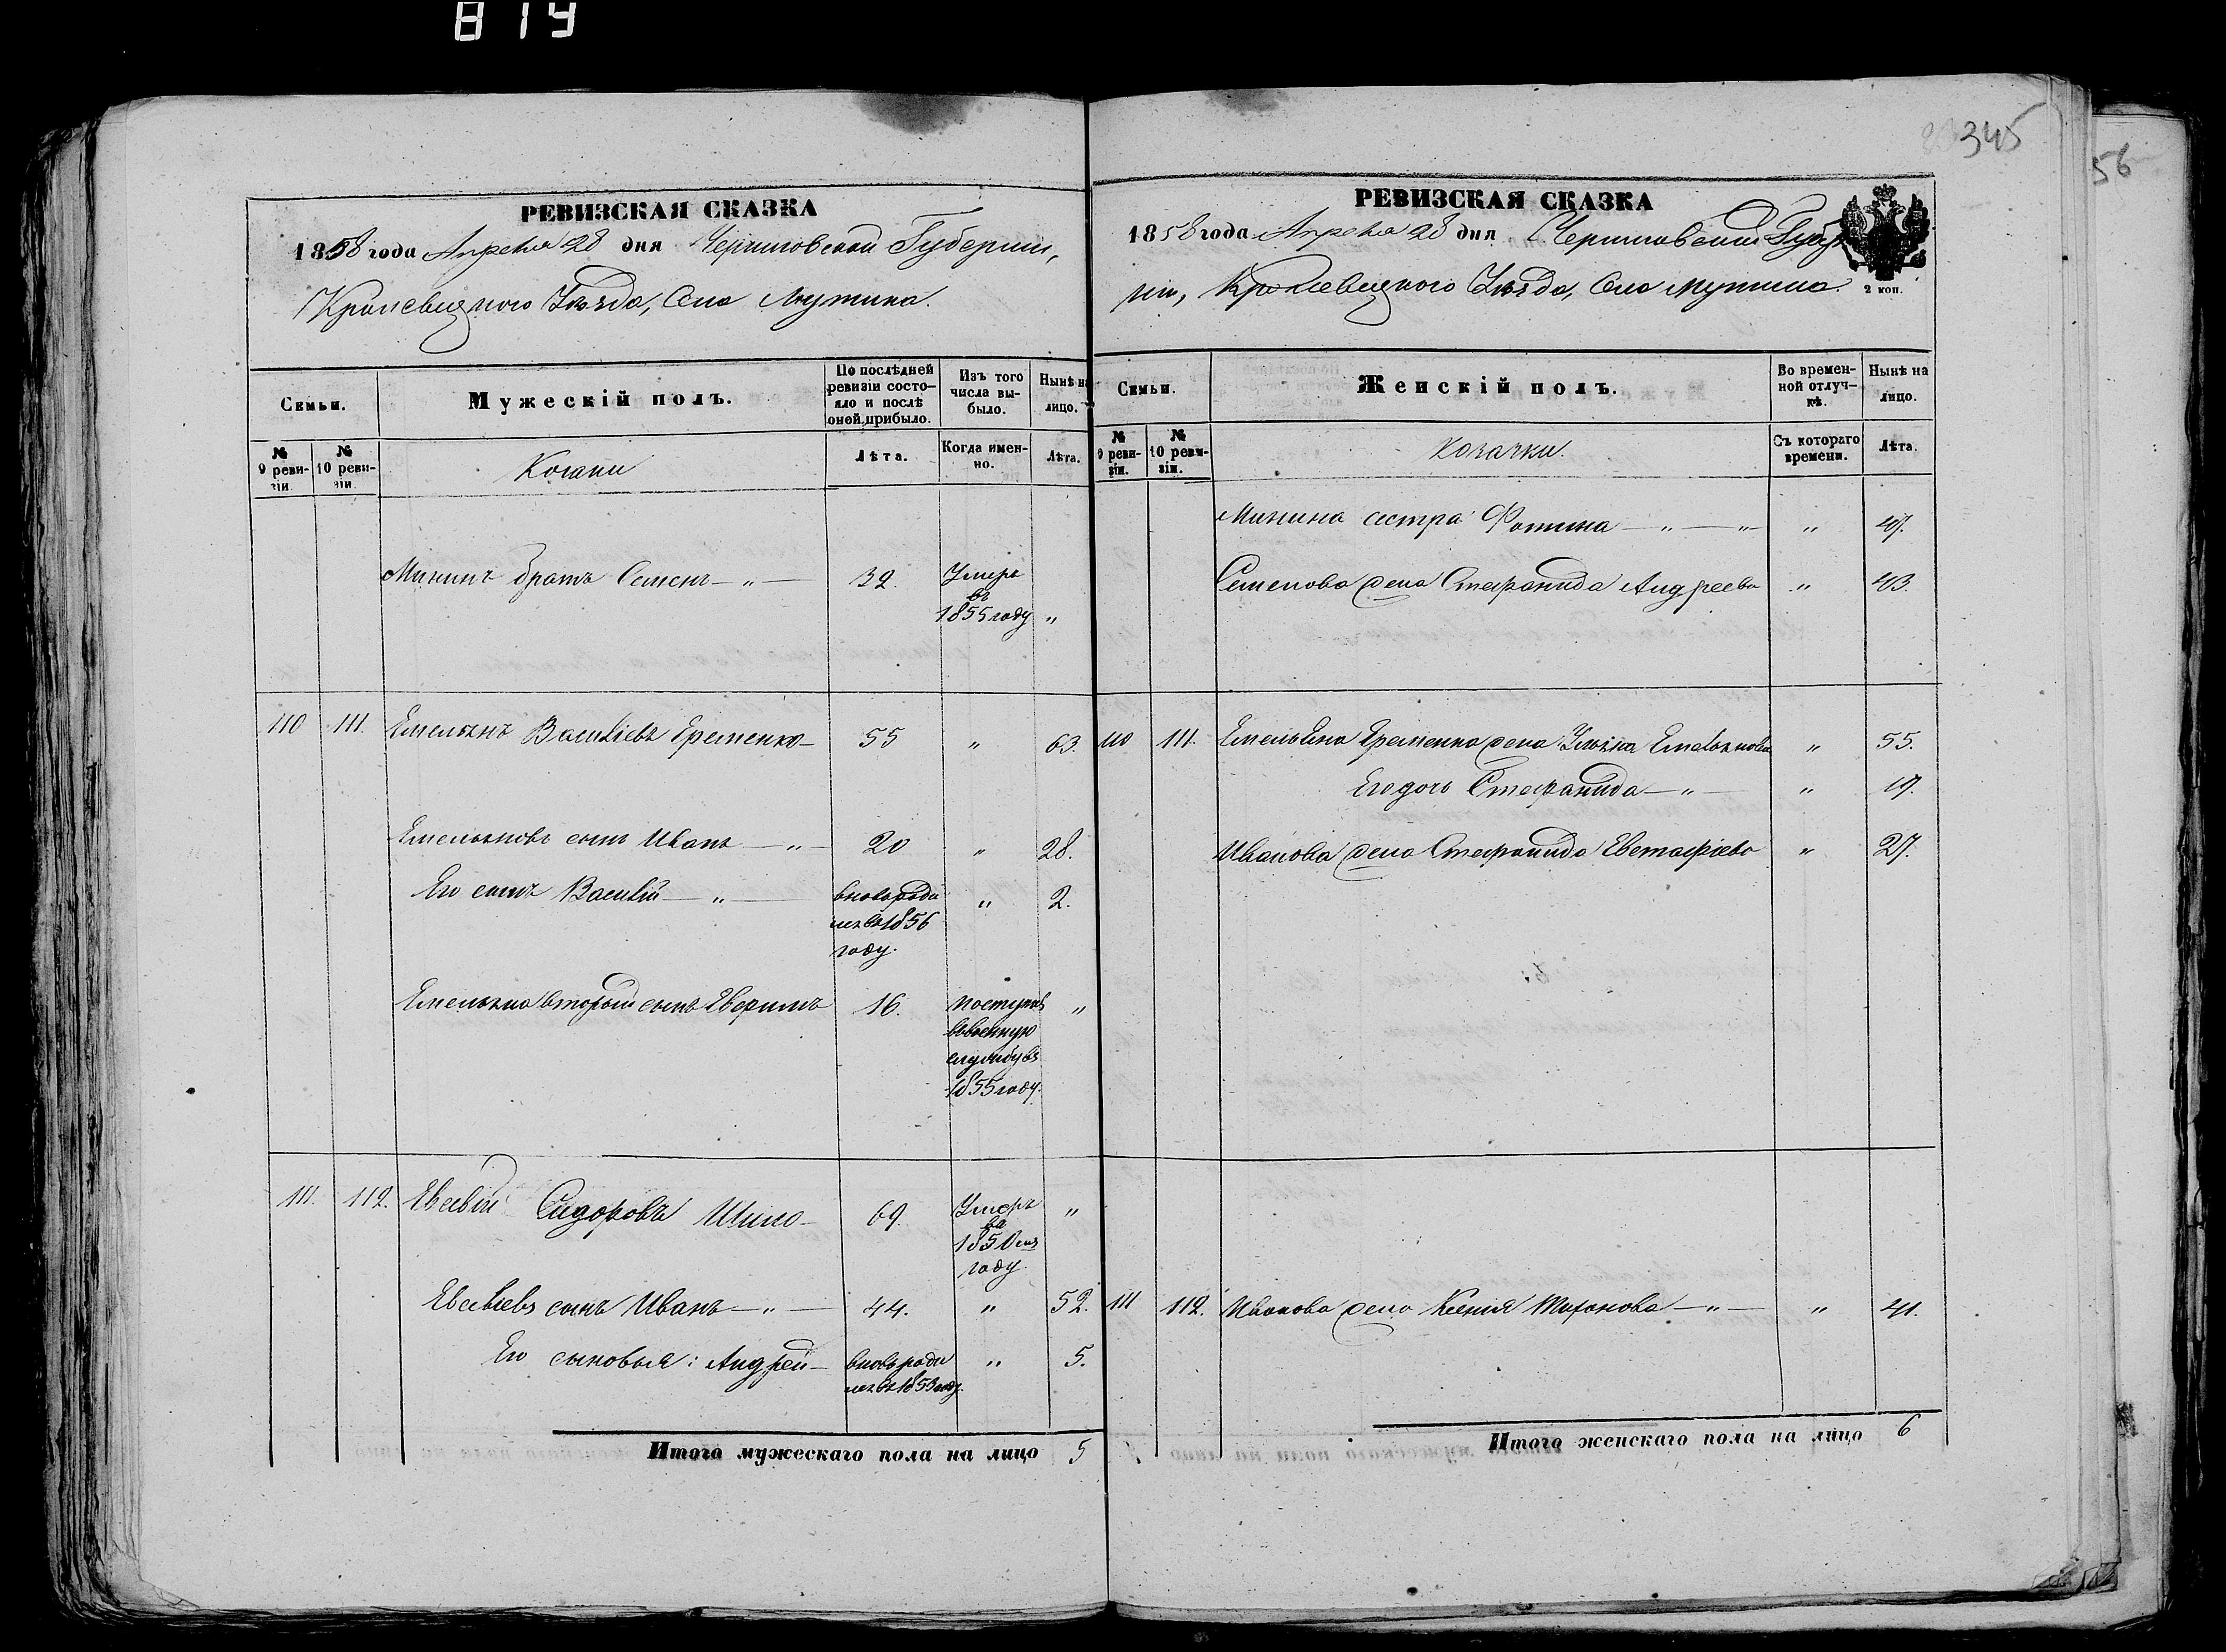 819
345
56
РЕВИЗСКАЯ СКАЗКА
1858 года Апреля 28 дня Черниговской Губерніи,
Кролевецкого Уѣзда, Села Мутина.
Семьи.
Мужескій полъ.
По послѣдней ревизіи состо-
яло и послѣ
оной прибыло.
Изъ того
числа вы-
было.
Нынѣ на
лицо.
№
9 реви-
зіи.
№
10 реви-
зіи.
Козаки
Лѣта.
Когда имен-
но.
Лѣта.
Мининъ братъ Семенъ — „ — 39. Умеръ
въ
1855 году „
110 111. Емельянъ Васильевъ Еременко — 55 „ 63.
Емельяновъ сынъ Иванъ — „ — 20 „ 28.
Его сынъ Василій — „ — вновь роди
лся въ 1856
году. „ 2.
Емельяна вторый сынъ Евфимъ 16. поступилъ
въ военную
службу въ
1855 году. „
111. 112. Евсевій Сидоровъ Шило — 69. Умеръ
въ
1850 мъ
году. „
Евсевіевъ сынъ Иванъ — „ — 44. „ 52.
Его сыновья: Андрей — вновь роди
лся въ 1853 году. „ 5.
Итого мужескаго пола на лицо 5
РЕВИЗСКАЯ СКАЗКА
1858 года Апреля 28 дня Черниговской Губер
ніи, Кролевецкого Уѣзда, Села Мутина.
2 коп.
Семьи.
Женскій полъ.
Во времен-
ной отлуч-
кѣ.
Нынѣ на
лицо.
№
9 реви-
зіи.
№
10 реви-
зіи.
Козачки.
Съ котораго
времени.
Лѣта.
Минина сестра Фотина — „ — „ „
Семенова жена Стефанида Андреева „ 43.
110 111. Емельяна Еременка жена Ульяна Емельянова „ 55.
Его дочь Стефанида — „ — „ 19.
Иванова жена Стефанида Евстафіева „ 27.
111 112. Иванова жена Ксенія Тихонова — „ — „ 41.
Итого женскаго пола на лицо 6